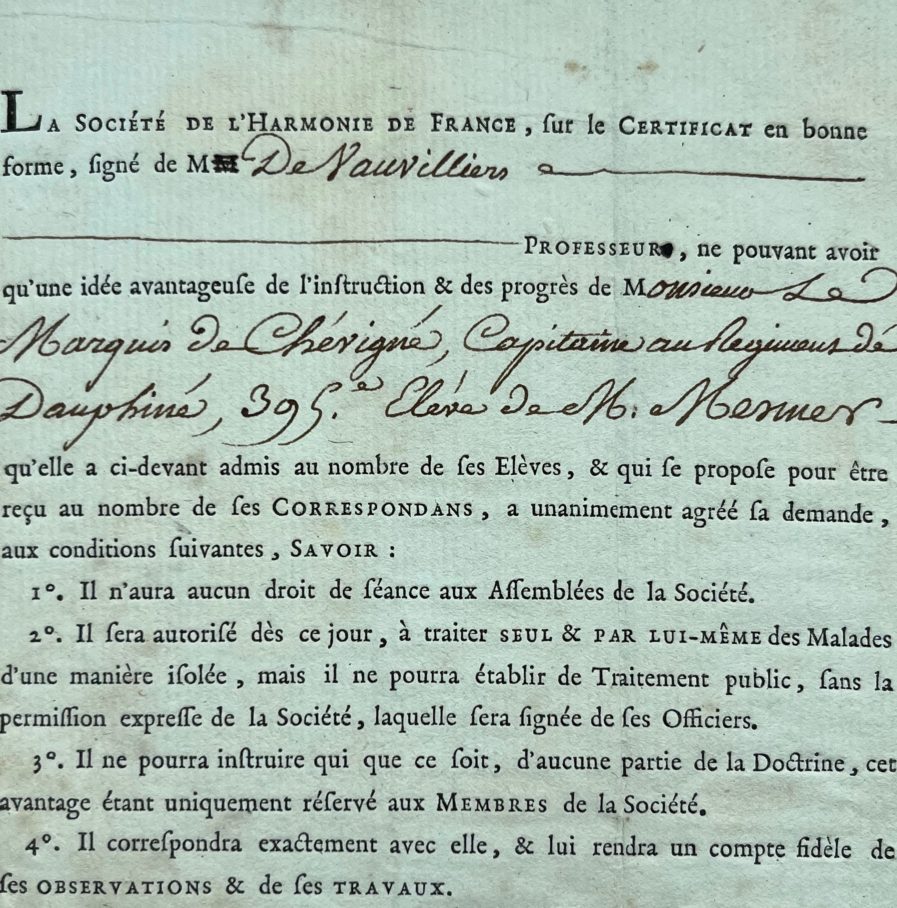 La Société de l'Harmonie de France, ſur le Certificat en bonne
forme, ſigné de M De Vauvilliers
Professeur, ne pouvant avoir
qu'une idée avantageuſe de l'inſtruction & des progrès de Monsieur Le
Marquis de Chévigné, Capitaine au Regiment de
Dauphiné, 395.e Eléve de M. Mesmer
qu'elle a ci-devant admis au nombre de ſes Elèves, & qui ſe propoſe pour être
reçu au nombre de ſes Correspondans, a unanimement agréé ſa demande,
aux conditions ſuivantes, Savoir :
1°. Il n'aura aucun droit de ſéance aux Aſſemblées de la Société.
2°. Il ſera autoriſé dès ce jour, à traiter seul & par lui-même des Malades
d'une manière iſolée, mais il ne pourra établir de Traitement public, ſans la
permiſſion expreſſe de la Société, laquelle ſera ſignée de ſes Officiers.
3°. Il ne pourra inſtruire qui que ce ſoit, d'aucune partie de la Doctrine, cet
avantage étant uniquement réſervé aux Membres de la Société.
4°. Il correſpondra exactement avec elle, & lui rendra un compte fidèle de
ſes observations & de ſes travaux.